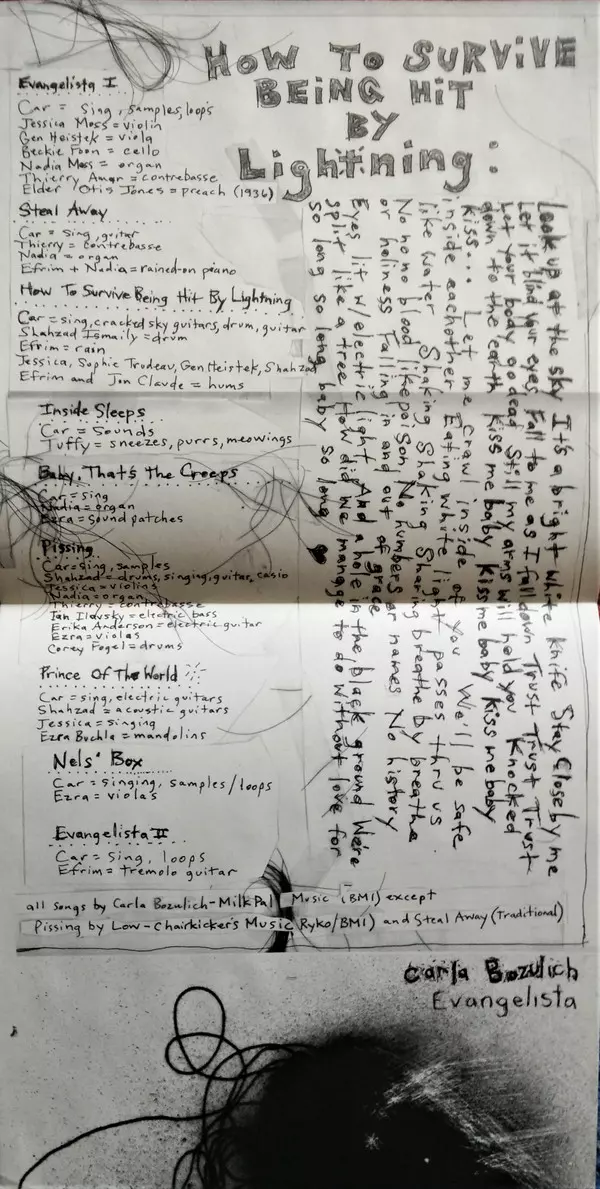 HOW TO SURVIVE
BEING HIT
BY
Lightning:
Evangelista I
Car = sing, samples, loops
Jessica Moss = violin
Gen Heistek = viola
Beckie Foon = cello
Nadia Moss = organ
Thierry Amar = contrebasse
Elder Otis Jones = preach (1936)
Steal Away
Car = sing, guitar
Thierry = contrebasse
Nadia = organ
Efrim + Nadia = rained-on piano
How To Survive Being Hit By Lightning
Car = sing, cracked sky guitars, drum, guitar
Shahzad Ismaily = drum
Efrim = rain
Jessica, Sophie Trudeau, Gen Heistek, Shahzad
Efrim and Jon Claude = hums
Inside Sleeps
Car = Sounds
Tuffy = sneezes, purrs, meowings
Baby, That's The Creeps
Car = sing
Nadia = organ
Ezra = sound patches
Pissing
Car = sing, samples
Shahzad = drums, singing, guitar, casio
Jessica = violins
Nadia = organ
Thierry = contrebasse
Ian Ilavsky = electric bass
Erika Anderson = electric guitar
Ezra = violas
Corey Fogel = drums
Prince Of The World
Car = sing, electric guitars
Shahzad = acoustic guitars
Jessica = singing
Ezra Buchla = mandolins
Nels' Box
Car = singing, samples/loops
Ezra = violas
Evangelista II
Car = sing, loops
Efrim = tremolo guitar
Look up at the sky It's a bright white Knife Stay Close by me
Let it blind your eyes Fall to me as I fall down Trust Trust Trust
Let Your body go dead Still my arms will hold you Knocked
down to the earth Kiss me baby Kiss me baby kiss me baby
Kiss... Let me crawl inside of you We'll be safe
inside eachother Eating white light passes thru us
like water Shaking Shaking Sharing breathe by breathe
No no no blood like poison No numbers or names No history
or holiness Falling in and out of grace
Eyes lit w/electric light And a hole in the black ground We're
split like a tree How did we manage to do without love for
So long so long baby so long
all songs by Carla Bozulich-MilkPal Music (BMI) except
Pissing by Low-Chairkicker's Music Ryko/BMI) and Steal Away (Traditional)
Carla Bozulich
Evangelista